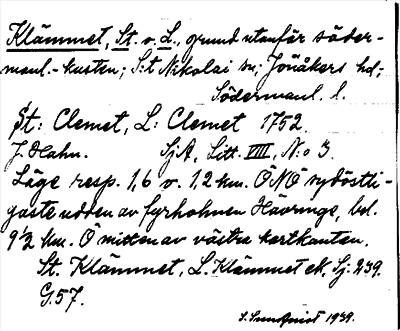 Klämmet, St. o. L., grund utanför söder-
manl.-kusten; S:t Nikolai sn; Jönåkers hd;
Södermanl. l.
St: Clemet, L: Clemet 1752.
J. Hahn. SjA, Litt. VIII, N:o 3.
Läge resp. 1,6 o. 1,2 km. ÖNÖ sydöstli-
gaste udden av fyrholmen Hävringe, bel.
9½ km. Ö mitten av västra kartkanten.
St. Klämmet, L. Klämmet ek, Sj. 239.
G.57.
1939.